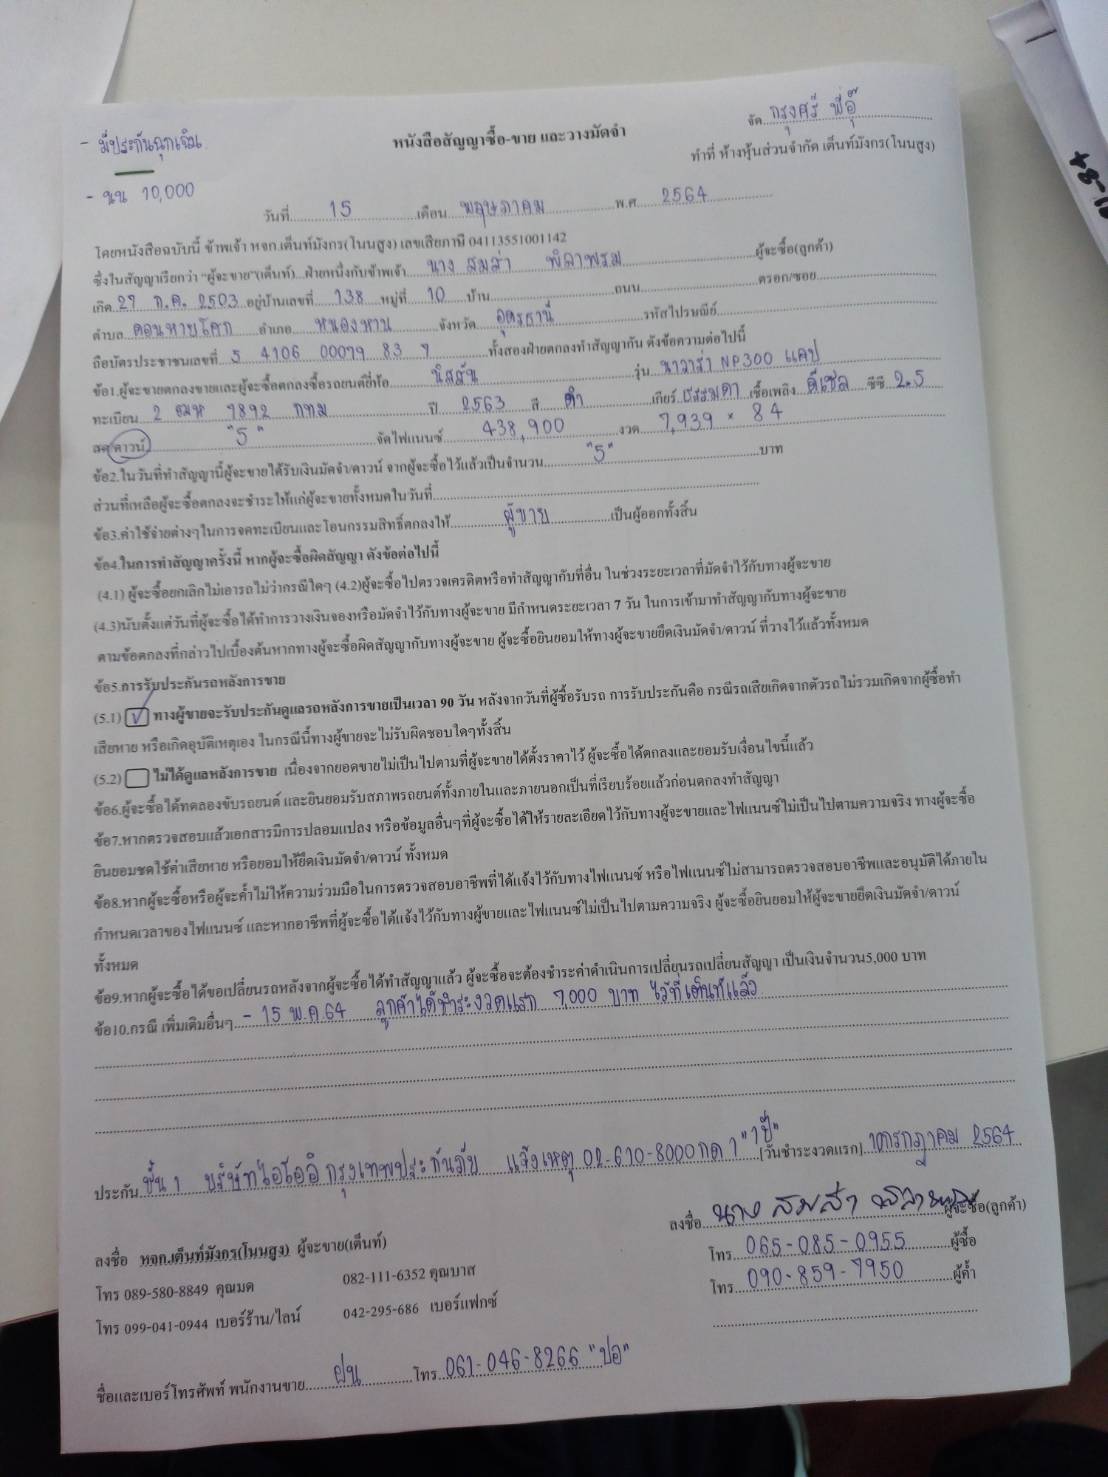 จัด กรุงศรี พี่อุ๊
- มีประกันฉุกเฉิน
หนังสือสัญญาซื้อ-ขาย และวางมัดจำ
ทำที่ ห้างหุ้นส่วนจำกัด เต็นท์มังกร(โนนสูง)
- นน 10,000
วันที่ 15 เดือน พฤษภาคม พ.ศ. 2564
โดยหนังสือฉบับนี้ ข้าพเจ้า หจก.เต็นท์มังกร(โนนสูง) เลขเสียภาษี 04113551001142
ซึ่งในสัญญาเรียกว่า "ผู้จะขาย"(เต็นท์)...ฝ่ายหนึ่งกับข้าพเจ้า นาง สมส่า พิลาพรม ผู้จะซื้อ(ลูกค้า)
เกิด 27 ก.ค. 2503 อยู่บ้านเลขที่ 138 หมู่ที่ 10 บ้าน ถนน ตรอก/ซอย
ตำบล ดอนหายโศก อำเภอ หนองหาน จังหวัด อุดรธานี รหัสไปรษณีย์
ถือบัตรประชาชนเลขที่ 5 4106 00079 83 7 ทั้งสองฝ่ายตกลงทำสัญญากัน ดังข้อความต่อไปนี้
ข้อ1.ผู้จะขายตกลงขายและผู้จะซื้อตกลงซื้อรถยนต์ยี่ห้อ นิสสัน รุ่น นาวาร่า NP300 แคป
ทะเบียน 2 ฒห 7892 กทม ปี 2563 สี ดำ เกียร์ ธรรมดา เชื้อเพลิง ดีเซล ซีซี 2.5
สด/ดาวน์ "5" จัดไฟแนนซ์ 438,900 งวด 7,939 × 84
ข้อ2.ในวันที่ทำสัญญานี้ผู้จะขายได้รับเงินมัดจำ/ดาวน์ จากผู้จะซื้อไว้แล้วเป็นจำนวน "5" บาท
ส่วนที่เหลือผู้จะซื้อตกลงจะชำระให้แก่ผู้จะขายทั้งหมดในวันที่
ข้อ3.ค่าใช้จ่ายต่างๆในการจดทะเบียนและโอนกรรมสิทธิ์ตกลงให้ ผู้ขาย เป็นผู้ออกทั้งสิ้น
ข้อ4.ในการทำสัญญาครั้งนี้ หากผู้จะซื้อผิดสัญญา ดังข้อต่อไปนี้
(4.1) ผู้จะซื้อยกเลิกไม่เอารถไม่ว่ากรณีใดๆ (4.2)ผู้จะซื้อไปตรวจเครดิตหรือทำสัญญากับที่อื่น ในช่วงระยะเวลาที่มัดจำไว้กับทางผู้จะขาย
(4.3)นับตั้งแต่วันที่ผู้จะซื้อได้ทำการวางเงินจองหรือมัดจำไว้กับทางผู้จะขาย มีกำหนดระยะเวลา 7 วัน ในการเข้ามาทำสัญญากับทางผู้จะขาย
ตามข้อตกลงที่กล่าวไปเบื้องต้นหากทางผู้จะซื้อผิดสัญญากับทางผู้จะขาย ผู้จะซื้อยินยอมให้ทางผู้จะขายยึดเงินมัดจำ/ดาวน์ ที่วางไว้แล้วทั้งหมด
ข้อ5.การรับประกันรถหลังการขาย
(5.1) ทางผู้ขายจะรับประกันดูแลรถหลังการขายเป็นเวลา 90 วัน หลังจากวันที่ผู้ซื้อรับรถ การรับประกันคือ กรณีรถเสียเกิดจากตัวรถไม่รวมเกิดจากผู้ซื้อทำ
เสียหาย หรือเกิดอุบัติเหตุเอง ในกรณีนี้ทางผู้ขายจะไม่รับผิดชอบใดๆทั้งสิ้น
(5.2) ไม่ได้ดูแลหลังการขาย เนื่องจากยอดขายไม่เป็นไปตามที่ผู้จะขายได้ตั้งราคาไว้ ผู้จะซื้อได้ตกลงและยอมรับเงื่อนไขนี้แล้ว
ข้อ6.ผู้จะซื้อได้ทดลองขับรถยนต์ และยินยอมรับสภาพรถยนต์ทั้งภายในและภายนอกเป็นที่เรียบร้อยแล้วก่อนตกลงทำสัญญา
ข้อ7.หากตรวจสอบแล้วเอกสารมีการปลอมแปลง หรือข้อมูลอื่นๆที่ผู้จะซื้อได้ให้รายละเอียดไว้กับทางผู้จะขายและไฟแนนซ์ไม่เป็นไปตามความจริง ทางผู้จะซื้อ
ยินยอมชดใช้ค่าเสียหาย หรือยอมให้ยึดเงินมัดจำ/ดาวน์ ทั้งหมด
ข้อ8.หากผู้จะซื้อหรือผู้จะค้ำไม่ให้ความร่วมมือในการตรวจสอบอาชีพที่ได้แจ้งไว้กับทางไฟแนนซ์ หรือไฟแนนซ์ไม่สามารถตรวจสอบอาชีพและอนุมัติได้ภายใน
กำหนดเวลาของไฟแนนซ์ และหากอาชีพที่ผู้จะซื้อได้แจ้งไว้กับทางผู้ขายและไฟแนนซ์ไม่เป็นไปตามความจริง ผู้จะซื้อยินยอมให้ผู้จะขายยึดเงินมัดจำ/ดาวน์
ทั้งหมด
ข้อ9.หากผู้จะซื้อได้ขอเปลี่ยนรถหลังจากผู้จะซื้อได้ทำสัญญาแล้ว ผู้จะซื้อจะต้องชำระค่าดำเนินการเปลี่ยนรถเปลี่ยนสัญญา เป็นเงินจำนวน5,000 บาท
ข้อ10.กรณี เพิ่มเติมอื่นๆ - 15 พ.ค. 64 ลูกค้าได้ชำระงวดแรก 7,000 บาท ไว้ที่เต็นท์แล้ว
ประกัน ชั้น 1 บริษัทไอโออิ กรุงเทพประกันภัย แจ้งเหตุ 02-610-8000 กด 1 "1ปี" [วันชำระงวดแรก] 10 กรกฎาคม 2564
ลงชื่อ นาง สมส่า พิลาพรม ผู้จะซื้อ(ลูกค้า)
ลงชื่อ หจก.เต็นท์มังกร(โนนสูง) ผู้จะขาย(เต็นท์)
โทร 065-085-0955 ผู้ซื้อ
โทร 089-580-8849 คุณมด 082-111-6352 คุณบาส
โทร 090-859-7950 ผู้ค้ำ
โทร 099-041-0944 เบอร์ร้าน/ไลน์ 042-295-686 เบอร์แฟกซ์
ชื่อและเบอร์โทรศัพท์ พนักงานขาย ฝน โทร 061-046-8266 "ปอ"